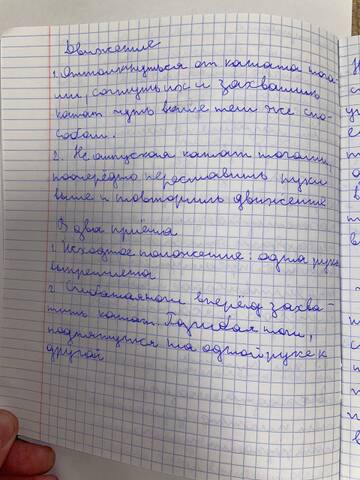 Движение
1. Оттолкнуться от каната нога-
ми, согнуть их и захватить
канат чуть выше тем же спо-
собом.
2. Не отпуская канат ногами,
поочерёдно переставить руки
выше и повторить движение
В два приёма
1. Исходное положение: одна рука
выпрямлена
2. Сгибая ноги вперёд захва-
тить канат. Разгибая ноги,
подтянуться на одной руке к
другой